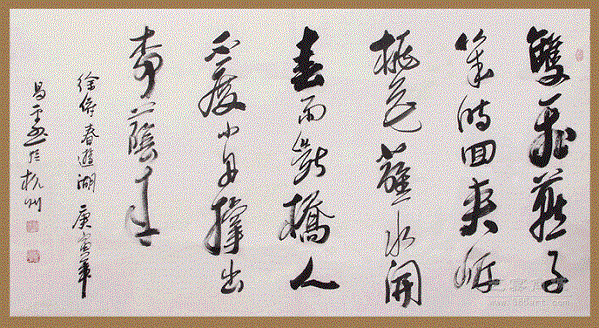 雙飛燕子
幾時回夾岸
桃花蘸水開
春雨斷橋人
不度小舟撑出
柳蔭來
徐俯春遊湖 庚寅年
昌於杭州